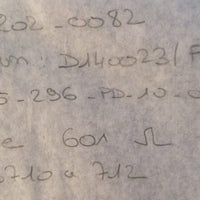 202-0082
un: D140023/F
5-296-PD-10-0
e 601 Ω
6710 a 712